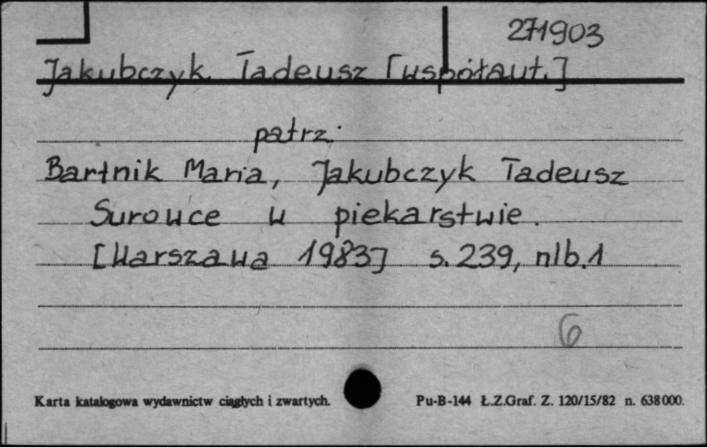 271903
Jakubczyk Tadeusz [współaut.]
patrz:
Bartnik Maria, Jakubczyk Tadeusz
Surowce w piekarstwie.
[Warszawa 1983] s. 239, nlb. 1
6
Karta katalogowa wydawnictw ciągłych i zwartych. Pu-B-144 Ł.Z.Graf. Z. 120/15/82 n. 638000.